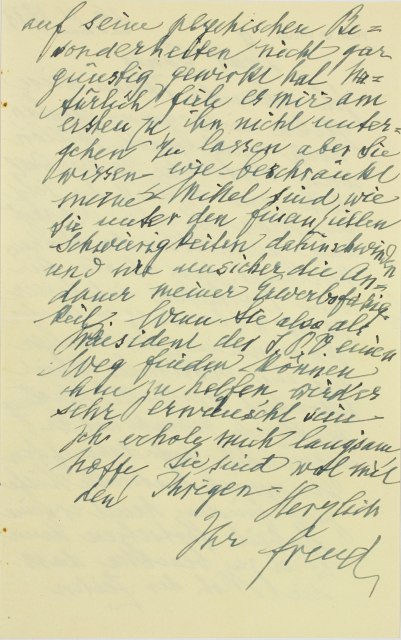 auf seine psychischen Be=
sonderheiten nicht gar
günstig gewirkt hat. Na=
türlich fiele es mir am
ersten zu ihn nicht unter=
gehen zu lassen aber Sie
wissen wie beschränkt
meine Mittel sind wie
sie unter den finanziellen
Schwierigkeiten dahinschwinden
und wie unsicher die An=
dauer meiner Erwerbsfähig=
keit. Wenn Sie also als
Präsident der IPV einen
Weg finden können
ihm zu helfen wird es
sehr erwünscht sein
Ich erhole mich langsam
hoffe Sie sind wol mit
den Ihrigen
Herzlich
Ihr Freud